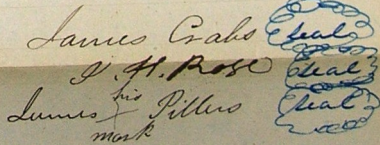 James Crabs Seal
J. H. Rose Seal
James his Pillers Seal
mark